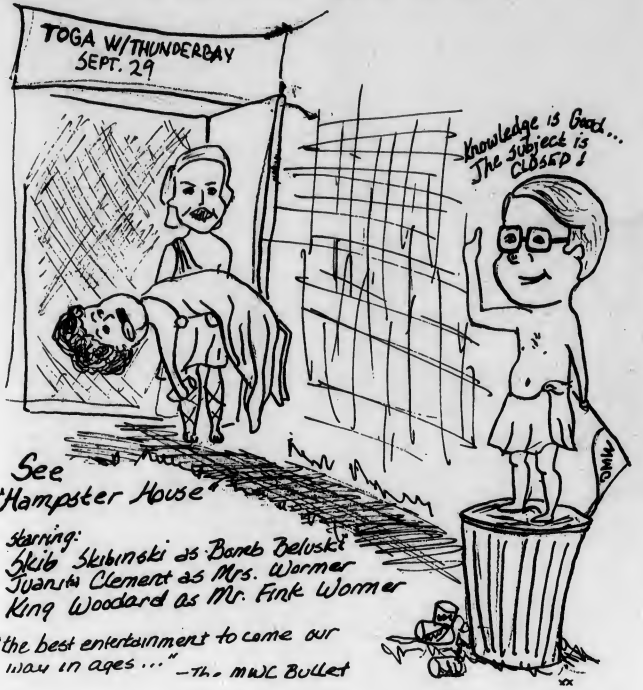 TOGA W/THUNDERBAY
SEPT. 29
Knowledge is Good...
The subject is
CLOSED!
MWC
See
"Hampster House"
starring:
Skib Skibinski as Bomb Beluski
Juanita Clement as Mrs. Wormer
King Woodard as Mr. Fink Wormer
"the best entertainment to come our
way in ages..." -The MWC Bullet
xx